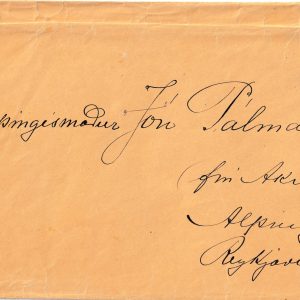 þingismaður Jón Pálma
frá Akri
Alþing
Reykjaví